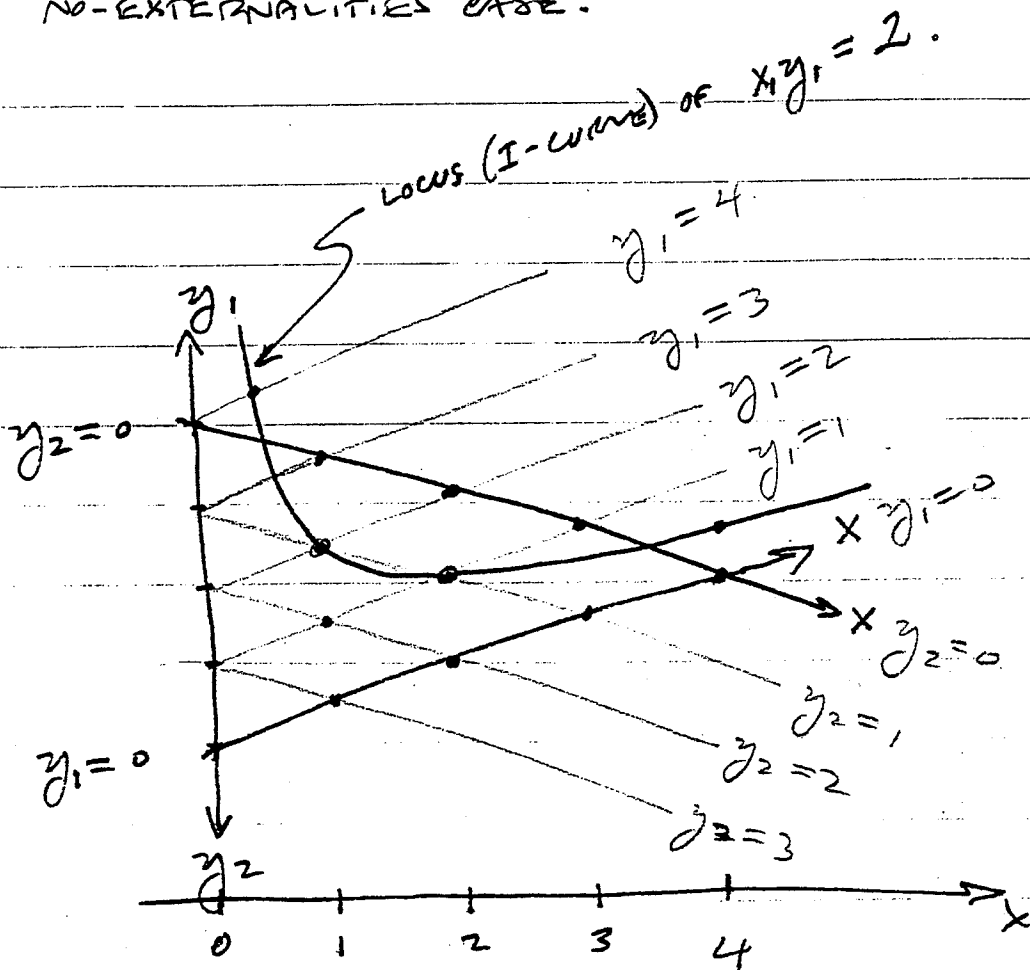 NO-EXTERNALITIES CASE.
LOCUS (I-CURVE) OF x₁y₁ = 2.
y₁ = 4
y₁
y₁ = 3
y₁ = 2
y₂ = 0
y₁ = 1
x y₁ = 0
x y₂ = 0
y₂ = 1
y₁ = 0
y₂ = 2
y₂ = 3
y₂
0 1 2 3 4 x